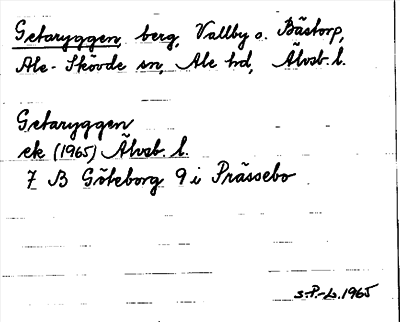 Getaryggen, berg, Vallby o. Bästorp,
Ale-Skövde sn, Ale hd, Älvsb. l.
Getaryggen
ek (1965) Älvsb. l.
7 B Göteborg 9 i Prässebo
S.P.-L. 1965